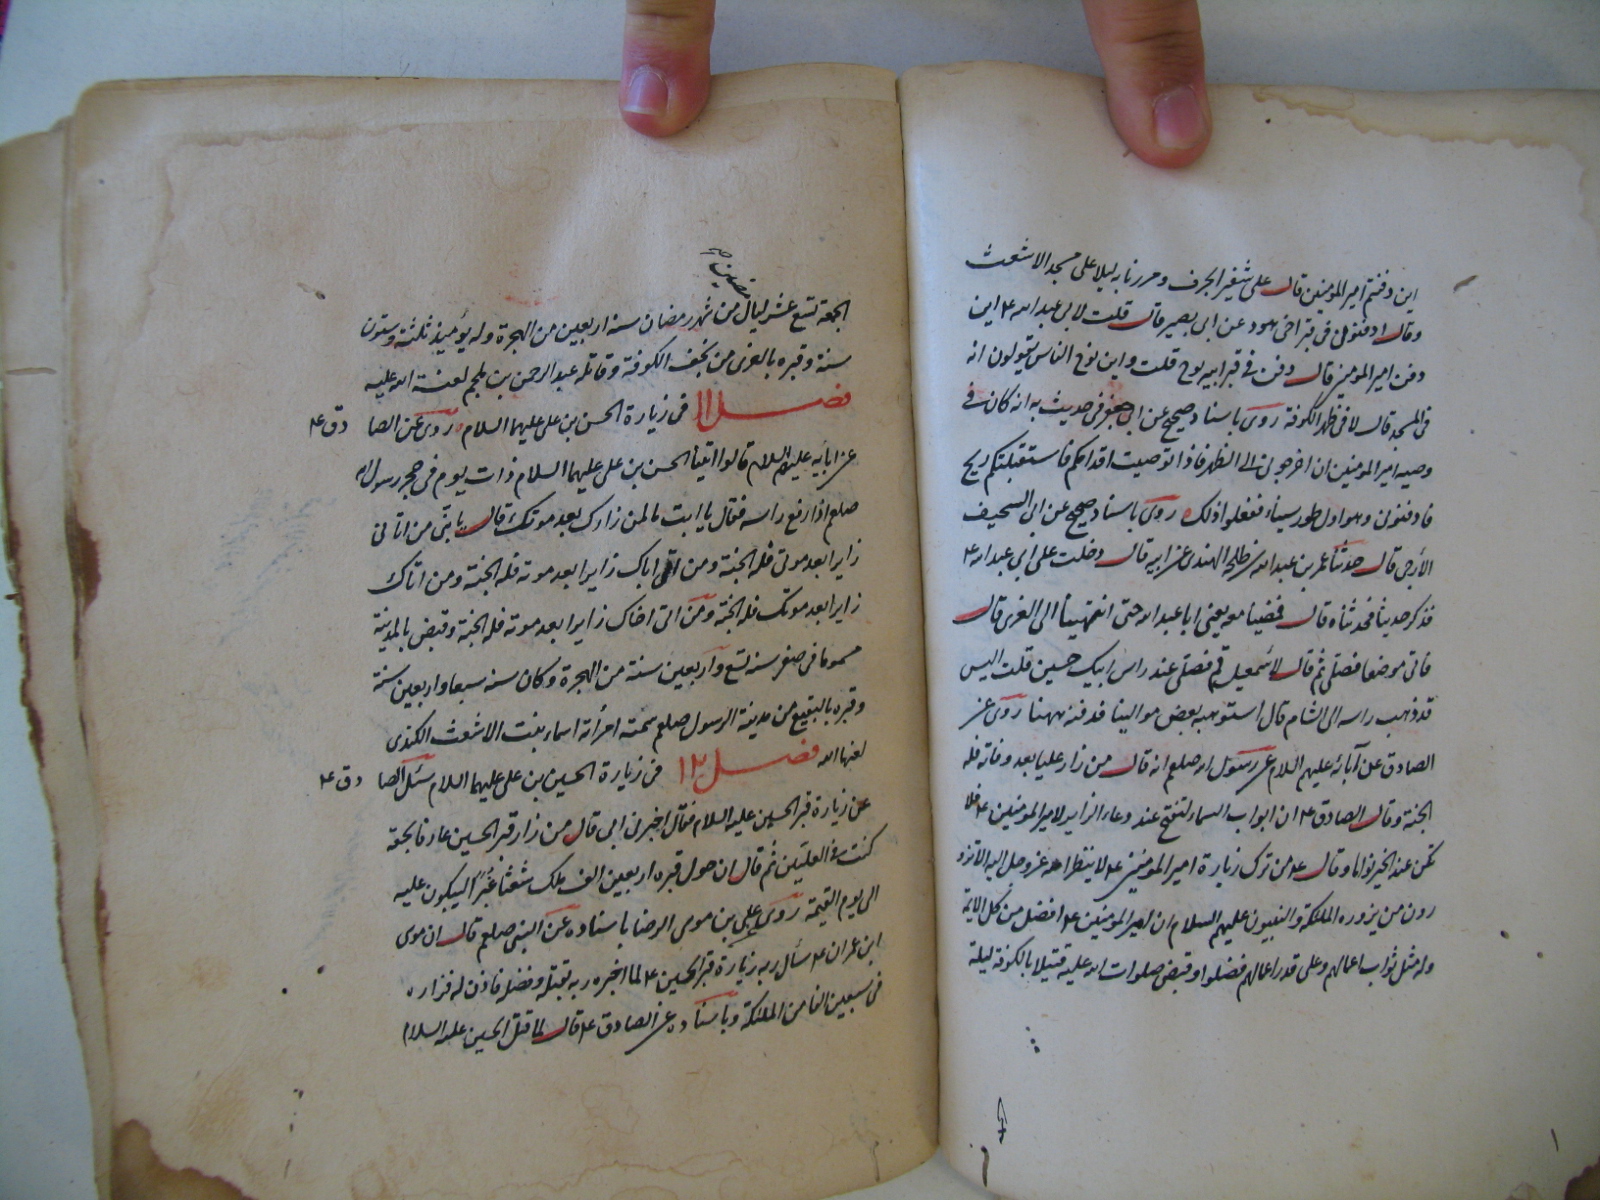 اين دفنتم امير المومنين قال على شفير الجرف ومررنا به ليلا على مسجد الاشعث
وقال ادفنونى فى قبر اخى هود عن ابى بصير قال قلت لابى عبد الله ع اين
دفن امير المومنين قال دفن فى قبر ابيه نوح قلت واين نوح الناس يقولون انه
فى المسجد قال لا فى ظهر الكوفة روى باسناد صحيح عن ابى جعفر فى حديث به انه كان فى
وصيه امير المومنين ان اخرجونى الى الظهر فاذا توصيت اقدامكم فاستقبلتكم ريح
فادفنونى وهو اول طور سيناء ففعلوا ذلك روى باسناد صحيح عن ابى السحيف
الأرجى قال حدثنا عمر بن عبد الله بن طلحة الهندى عن ابيه قال دخلت على ابى عبد الله ع
فذكر حديثا فحدثناه قال فمضينا معه يعنى ابا عبد الله حتى انتهينا الى الغرى قال
فاتى موضعا فصلى ثم قال لاسمعيل قم فصلى عند راس ابيك حسين قلت اليس
قد ذهب راسه الى الشام قال استوهبه بعض موالينا فدفنه ههنا روى عن
الصادق عن آبائه عليهم السلام عن رسول الله صلعم انه قال من زار عليا بعد وفاته فله
الجنة وقال الصادق ع ان ابواب السماء لتفتح عند دعاء الزاير لامير المومنين ع فلا
تكن عند الخير نواما وقال ع من ترك زيارة امير المومنين ع لا ينظر الله عز وجل اليه الا تزو
رون من يزوره الملئكة والنبيون عليهم السلام ان امير المومنين ع افضل من كل الايمة
وله مثل ثواب اعمالهم وعلى قدر اعمالهم فضلوا وقبض صلوات الله عليه قتيلا بالكوفة ليلة
الجمعة لتسع عشر ليال من شهر رمضان سنة اربعين من الهجرة وله يؤميذ ثلثة وستون
سنة وقبره بالغرى من نجف الكوفة وقاتله عبد الرحمن بن ملجم لعنة الله عليه
فصل ١١ فى زيارة الحسن بن على عليهما السلام روى عن الصا دق ع
عن ابائه عليهم السلام قالوا اتينا الحسن بن على عليهما السلام ذات يوم فى حجر رسول الله
صلعم اذا رفع راسه فقال يا ابت ما لمن زارك بعد موتك قال يا بنى من اتانى
زايرا بعد موتى فله الجنة ومن اتى اباك زايرا بعد موته فله الجنة ومن اتاك
زايرا بعد موتك فله الجنة ومن اتى اخاك زايرا بعد موته فله الجنة وقبض بالمدينة
مسموما فى صفر سنه تسع واربعين سنة من الهجرة وكان سنه سبعا واربعين سنة
وقبره بالبقيع من مدينة الرسول صلعم سمته امرأته اسماء بنت الاشعث الكندى
لعنها الله فصل ١٢ فى زيارة الحسين بن على عليهما السلام سئل الصا دق ع
عن زيارة قبر الحسين عليه السلام فقال اخبرنى ابى قال من زار قبر الحسين عارفا بحقه
كتب فى العليين ثم قال ان حول قبره اربعين الف ملك شعثا غبرا يبكون عليه
الى يوم القيمة روى على بن موسى الرضا باسناده عن النبى صلعم قال ان موسى
ابن عمران ع سأل ربه زيارة قبر الحسين ع لما اخبره ربه بقتله وفضله فاذن له فزاره
فى سبعين الفا من الملئكة وباسناده عن الصادق ع قال لما قتل الحسين عليه السلام